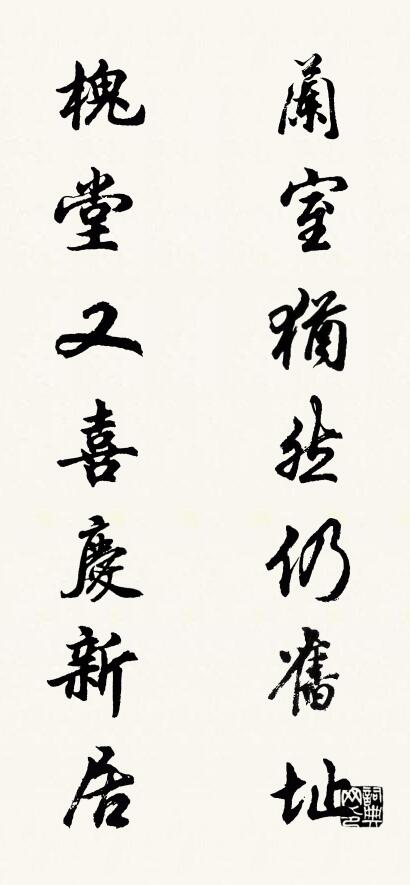 蘭室猶然仍舊址
槐堂又喜慶新居
詞典网